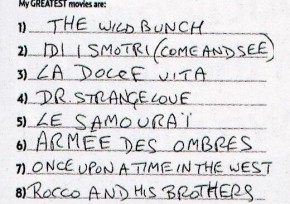 My GREATEST movies are:
1) THE WILD BUNCH
2) IDI I SMOTRI (COME AND SEE)
3) LA DOLCE VITA
4) DR. STRANGELOVE
5) LE SAMOURAÏ
6) ARMEE DES OMBRES
7) ONCE UPON A TIME IN THE WEST
8) ROCCO AND HIS BROTHERS